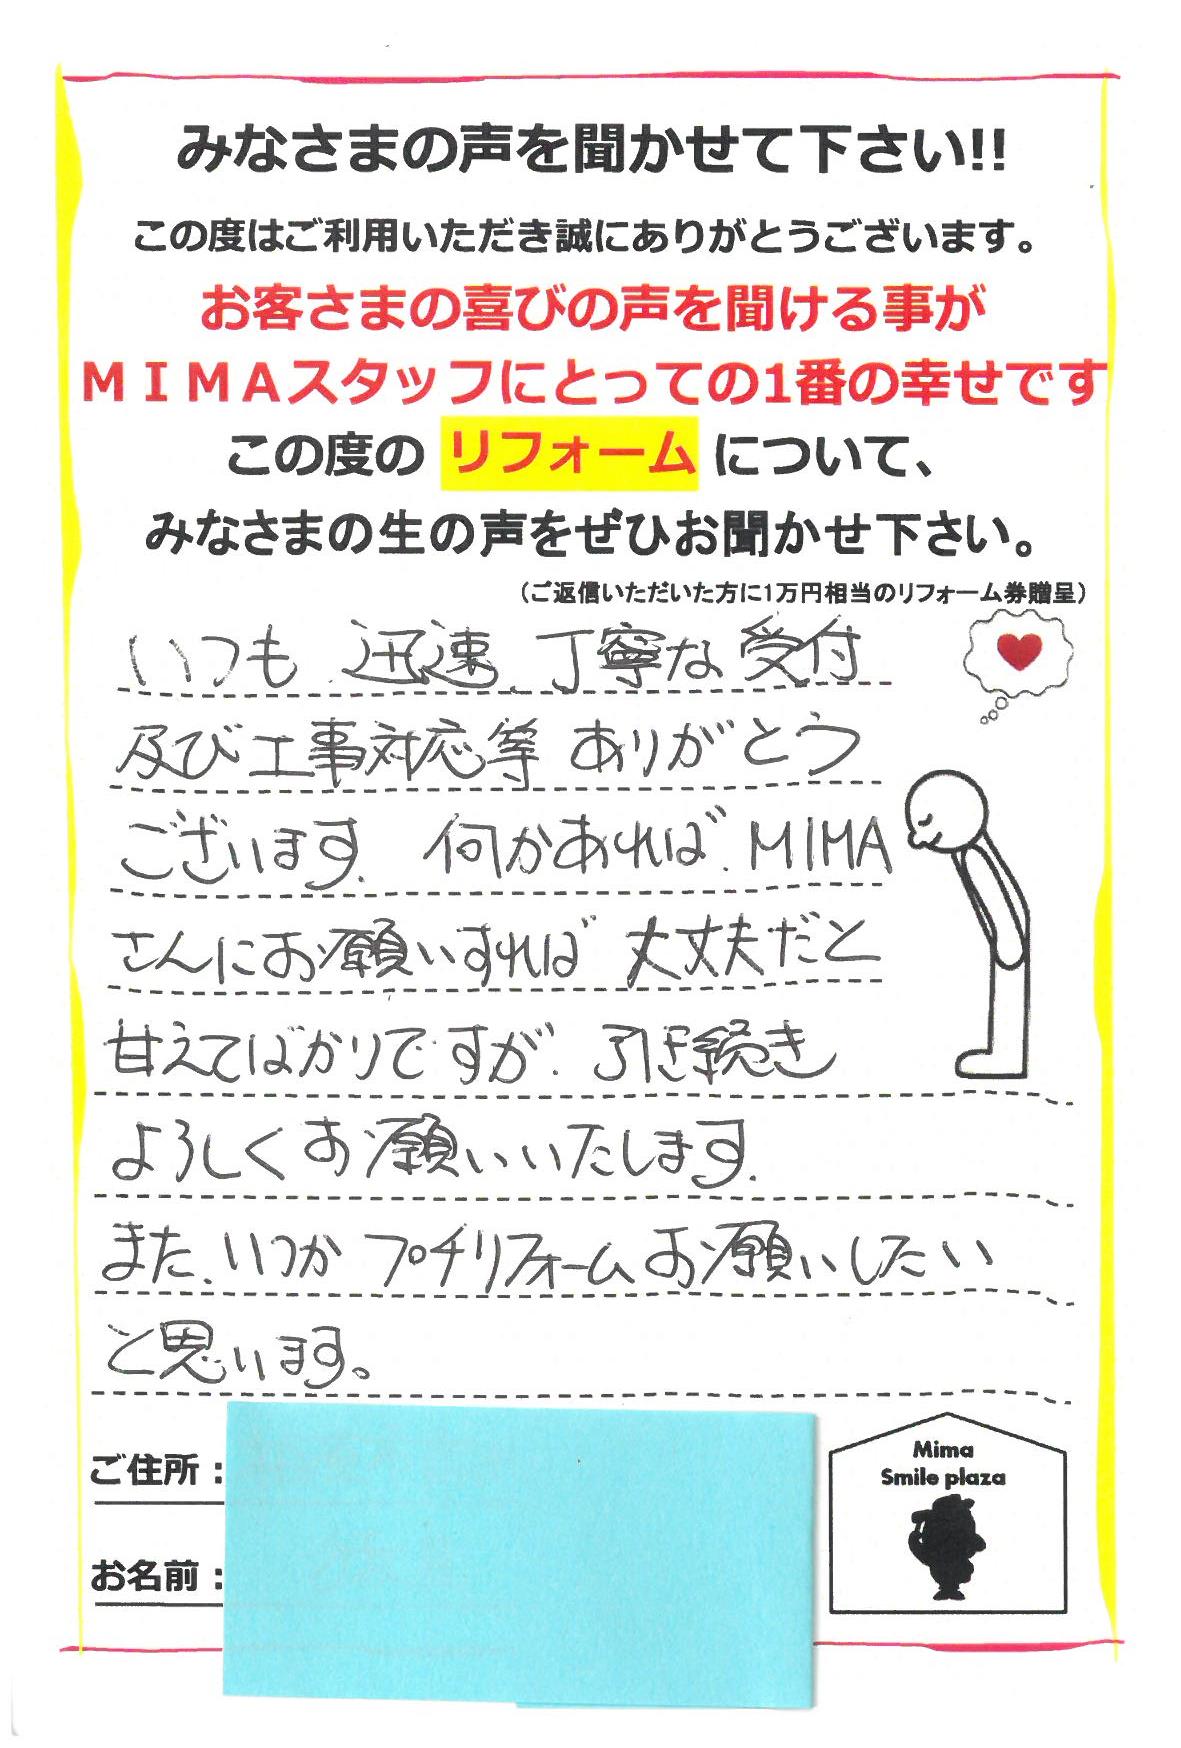 みなさまの声を聞かせて下さい!!
この度はご利用いただき誠にありがとうございます。
お客さまの喜びの声を聞ける事が
ＭＩＭＡスタッフにとっての1番の幸せです
この度の リフォーム について、
みなさまの生の声をぜひお聞かせ下さい。
（ご返信いただいた方に1万円相当のリフォーム券贈呈）
いつも 迅速、丁寧な 受付
及び 工事対応等 ありがとう
ございます。 何かあれば、MIMA
さんにお願いすれば 丈丈夫だと
甘えてばかりですが、引き続き
よろしくお願いいたします。
また、いつか プチリフォームお願いしたい
と思います。
ご住所：
お名前：
Mima
Smile plaza